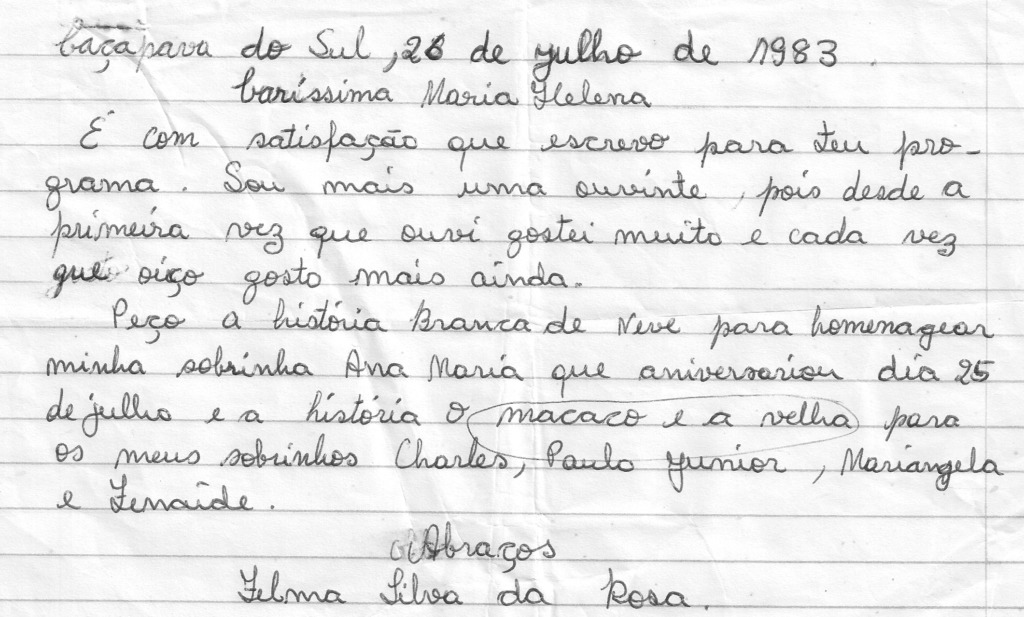 Caçapava do Sul, 26 de julho de 1983.
Caríssima Maria Helena
É com satisfação que escrevo para teu pro-
grama. Sou mais uma ouvinte, pois desde a
primeira vez que ouvi gostei muito e cada vez
que oiço gosto mais ainda.
Peço a história Branca de Neve para homenagear
minha sobrinha Ana Maria que aniversariou dia 25
de julho e a história o macaco e a velha para
os meus sobrinhos Charles, Paulo Junior, Mariangela
e Zenaide.
Abraços
Zelma Silva da Rosa.